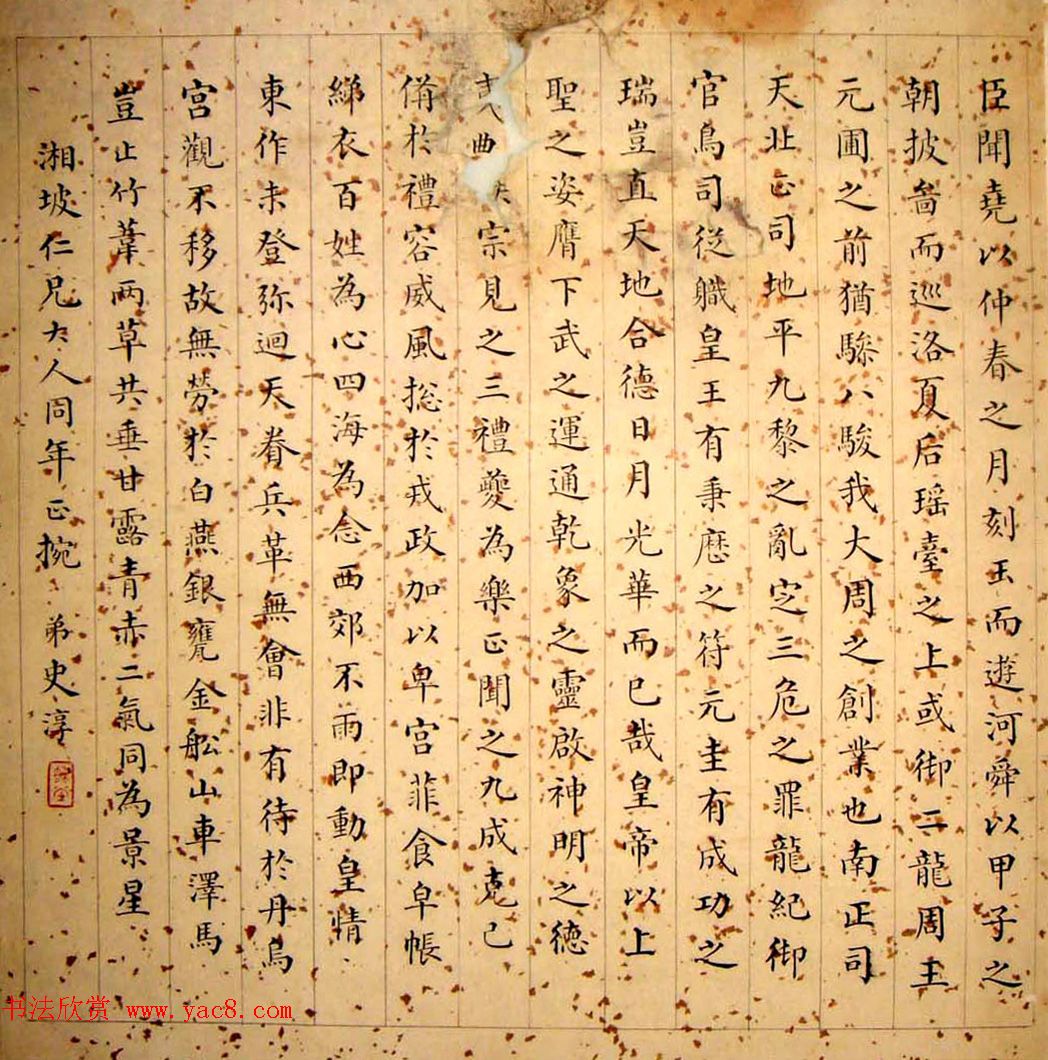 臣聞堯以仲春之月刻玉而遊河舜以甲子之
朝披啚而巡洛夏后瑶臺之上或御二龍周王
元圃之前猶驂八駿我大周之創業也南正司
天北正司地平九黎之亂定三危之罪龍紀御
官鳥司從職皇王有秉歷之符元圭有成功之
瑞豈直天地合德日月光華而已哉皇帝以上
聖之姿膺下武之運通乾象之靈啟神明之德
典秩宗見之三禮夔為樂正聞之九成克己
備於禮容威風捴於戎政加以卑宮菲食皁帳
綈衣百姓為心四海為念西郊不雨即動皇情
東作未登弥迴天眷兵革無會非有待於丹烏
宮觀不移故無勞於白燕銀甕金舩山車澤馬
豈止竹葦兩草共垂甘露青赤二氣同為景星
湘坡仁兄大人同年正捥 弟史淳
书法欣赏 www.yac8.com